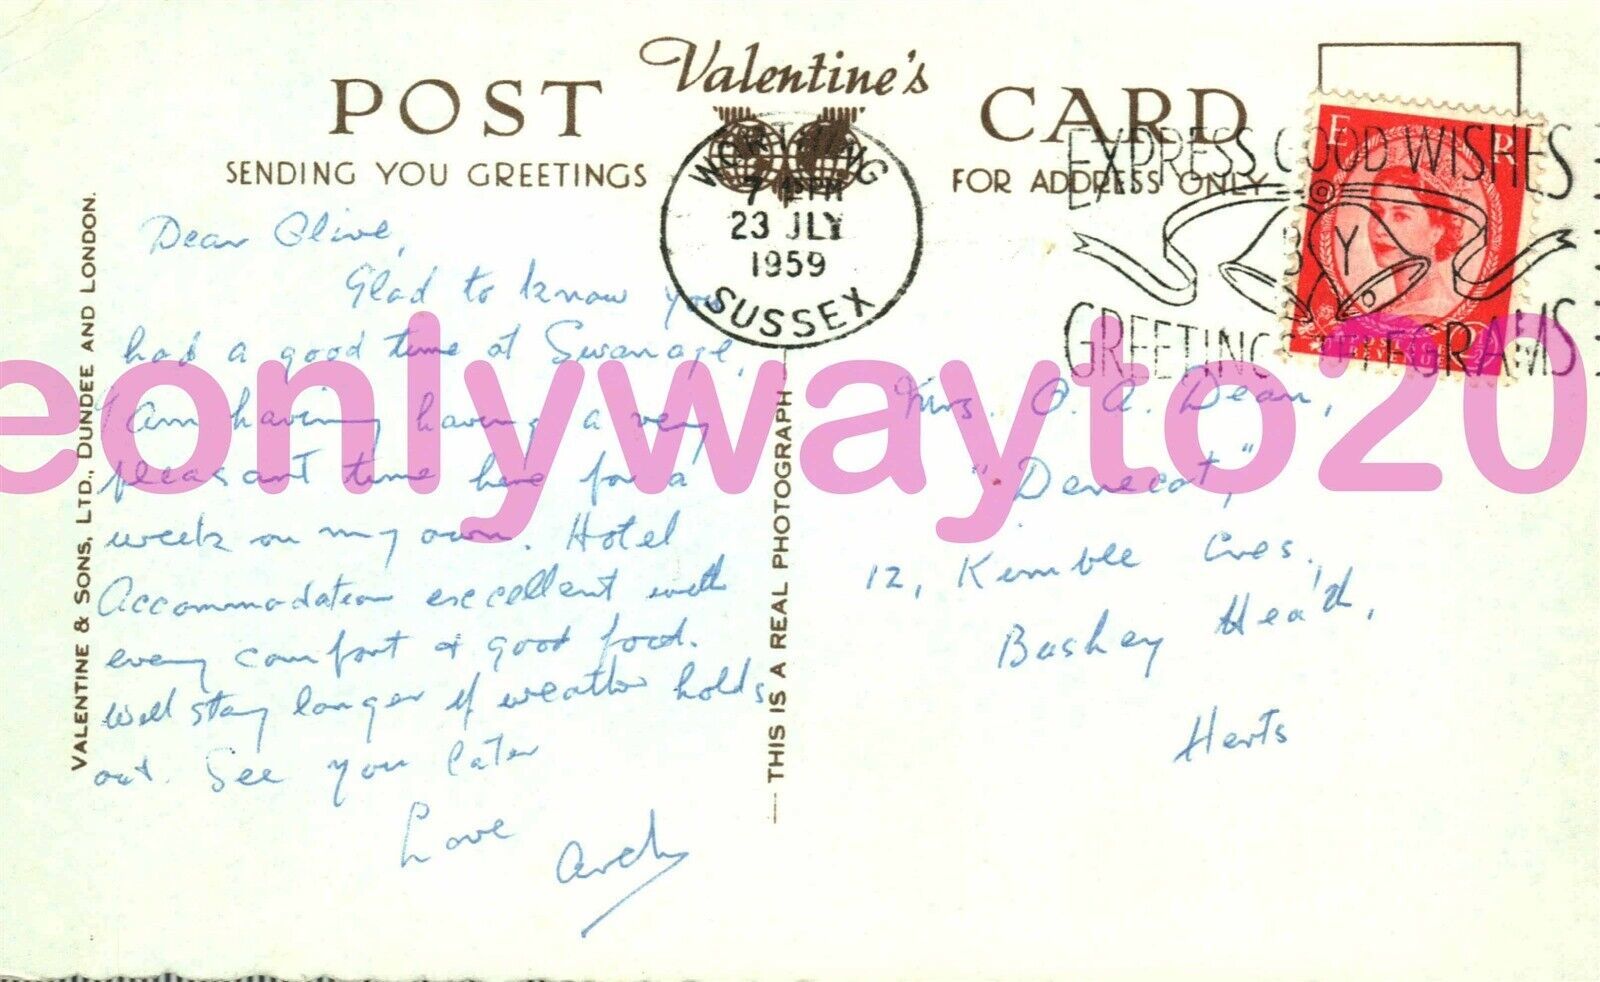 Valentine's
POST CARD
SENDING YOU GREETINGS
FOR ADDRESS ONLY
WORTHING
7 PM
23 JLY
1959
SUSSEX
EXPRESS GOOD WISHES
BY
GREETINGS TELEGRAMS
E R
Dear Olive,
Glad to know you
had a good time at Swanage,
Am having having a very
pleasant time here for a
week on my own. Hotel
Accommodation excellent with
every comfort & good food.
Will stay longer if weather holds
out. See you later
Love
Arch
Mrs. O. A. Dean,
"Denecot,"
12, Kimble Cres.,
Bushey Heath,
Herts
VALENTINE & SONS, LTD., DUNDEE AND LONDON.
THIS IS A REAL PHOTOGRAPH
eonlywayto20